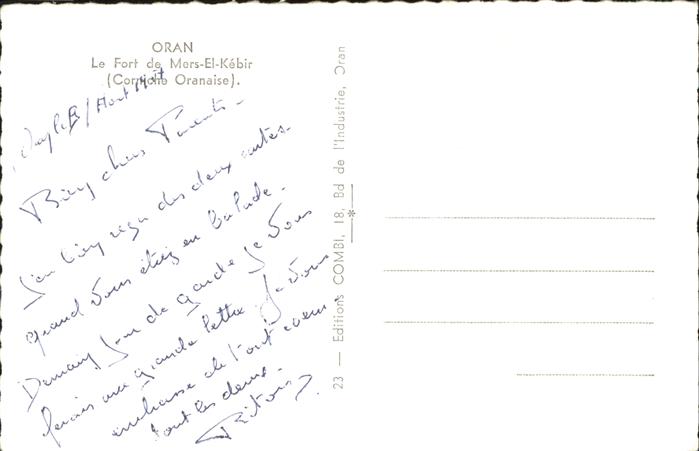 ORAN
Le Fort de Mers-El-Kébir
(Corniche Oranaise).
Bien chers Parents -
J'ai bien reçu des deux cartes
quand vous étiez en balade.
Demain jour de garde je vous
ferais une grande lettre. Je vous
embrasse de tout cœur.
tout les deux -
23 — Editions COMBI, 18, Bd de l'Industrie, Oran